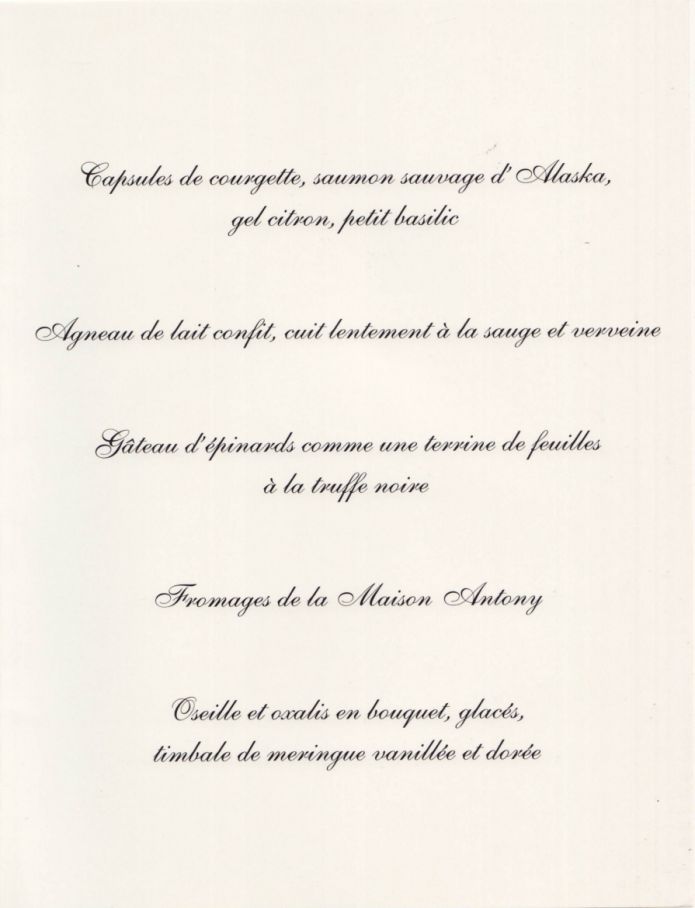 Capsules de courgette, saumon sauvage d'Alaska,
gel citron, petit basilic
Agneau de lait confit, cuit lentement à la sauge et verveine
Gâteau d'épinards comme une terrine de feuilles
à la truffe noire
Fromages de la Maison Antony
Oseille et oxalis en bouquet, glacés,
timbale de meringue vanillée et dorée